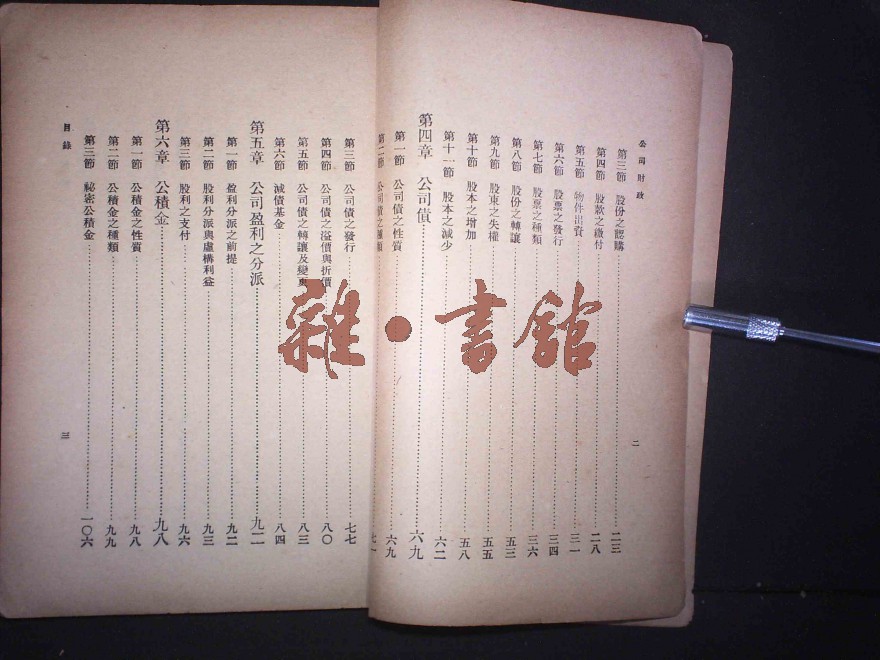 公司財政
第三節 股份之認購 二三
第四節 股款之繳付 二八
第五節 物件出資 三一
第六節 股票之發行 三四
第七節 股票之種類 三六
第八節 股份之轉讓 五三
第九節 股東之失權 五五
第十節 股本之增加 五八
第十一節 股本之減少 六二
第四章 公司債 六九
第一節 公司債之性質 六九
第二節 公司債之種類 七一
二
第三節 公司債之發行 七七
第四節 公司債之溢價與折價 八〇
第五節 公司債之轉讓及變更 八三
第六節 減債基金 八四
第五章 公司盈利之分派 九二
第一節 盈利分派之前提 九二
第二節 股利分派與虛構利益 九三
第三節 股利之支付 九六
第六章 公積金 九八
第一節 公積金之性質 九八
第二節 公積金之種類 九九
第三節 祕密公積金 一〇六
目錄
三
雜•書館